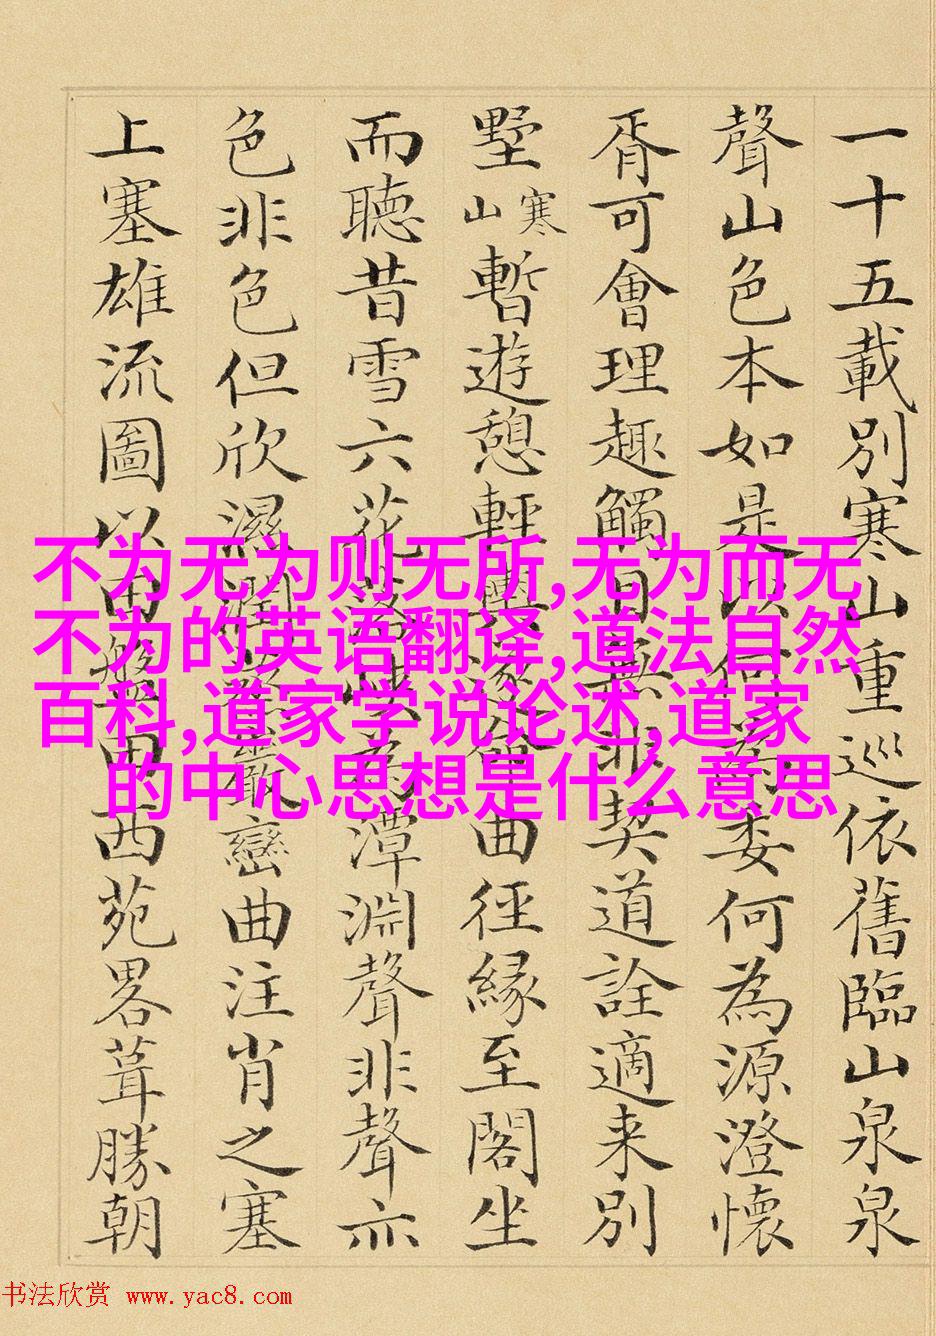 一十五載別寒山重巡依舊臨山泉泉
聲山色本如是以何為委何為源澄懷
胥可會理趣觸目無非契道詮適来別
墅寒山暫遊憩輕輿曲徑縁至閣坐
而聽昔雪六花落峡為潭淵聲非聲亦
色非色但欣濕潤叢巒曲注肖之塞
上塞雄流圖以盤田西苑畧葺勝朝
不为无为则无所,无为而无
不为的英语翻译,道法自然
百科,道家学说论述,道家
的中心思想是什么意思
书法欣赏 www.yac8.com